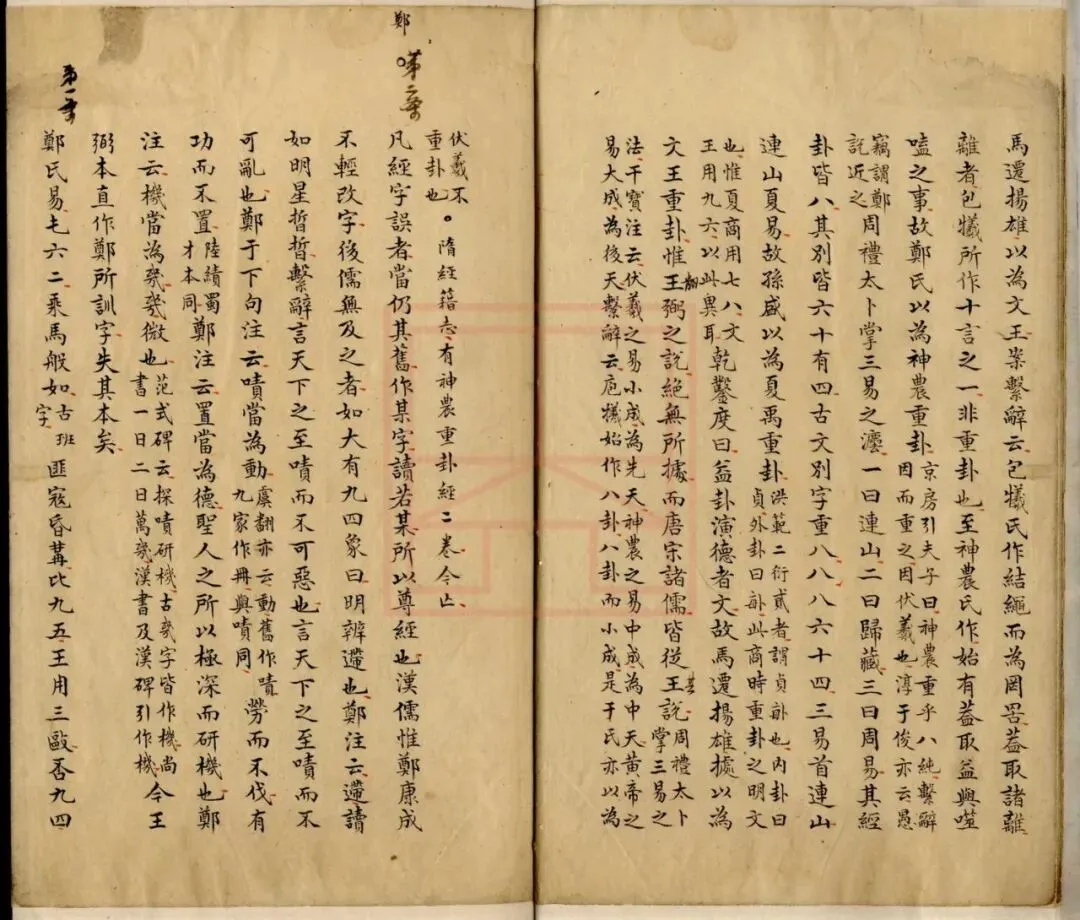 馬遷揚雄以為文王案繫辭云包犧氏作結繩而為罔罟葢取諸離
離者包犧所作十言之一非重卦也至神農氏作始有葢取益與噬
嗑之事故鄭氏以為神農重卦
京房引夫子曰神農重乎八純繫辭
因而重之因伏羲也淳于俊亦云愚
竊謂鄭
說近之
周禮太卜掌三易之灋一曰連山二曰歸藏三曰周易其經
卦皆八其別皆六十有四古文別字重八八八六十四三易首連山
連山夏易故孫盛以為夏禹重卦
洪範二衍貳者謂貞𠧩也內卦曰
貞外卦曰𠧩此商時重卦之明文
也惟夏商用七八文
王用九六以此異耳
乾鑿度曰益卦演德者文故馬遷揚雄據以為
文王重卦惟王弼之說絕無所據而唐宋諸儒皆從王其說
周禮太卜
掌三易之
法干寶注云伏羲之易小成為先天神農之易中成為中天黃帝之
易大成為後天繫辭云庖犧始作八卦八卦而小成是干氏亦以為
伏羲不
重卦也
。隋經籍志有神農重卦經二卷今亾
鄭
第二条
凡經字誤者當仍其舊作某字讀若某所以尊經也漢儒惟鄭康成
不輕改字後儒無及之者如大有九四象曰明辨遰也鄭注云遰讀
如明星晢晢繫辭言天下之至嘖而不可惡也言天下之至嘖而不
可亂也鄭于下句注云嘖當為動
虞翻亦云動舊作嘖
九家作冊與嘖同
勞而不伐有
功而不置
陸績蜀
才本同
鄭注云置當為德聖人之所以極深而研機也鄭
注云機當為幾幾微也
范式碑云探嘖研機古幾字皆作機尚
書一日二日萬幾漢書及漢碑引作機
今王
弼本直作鄭所訓字失其本矣
第一条
鄭氏易屯六二乘馬般如
古班
字
匪寇昏冓比九五王用三敺否九四